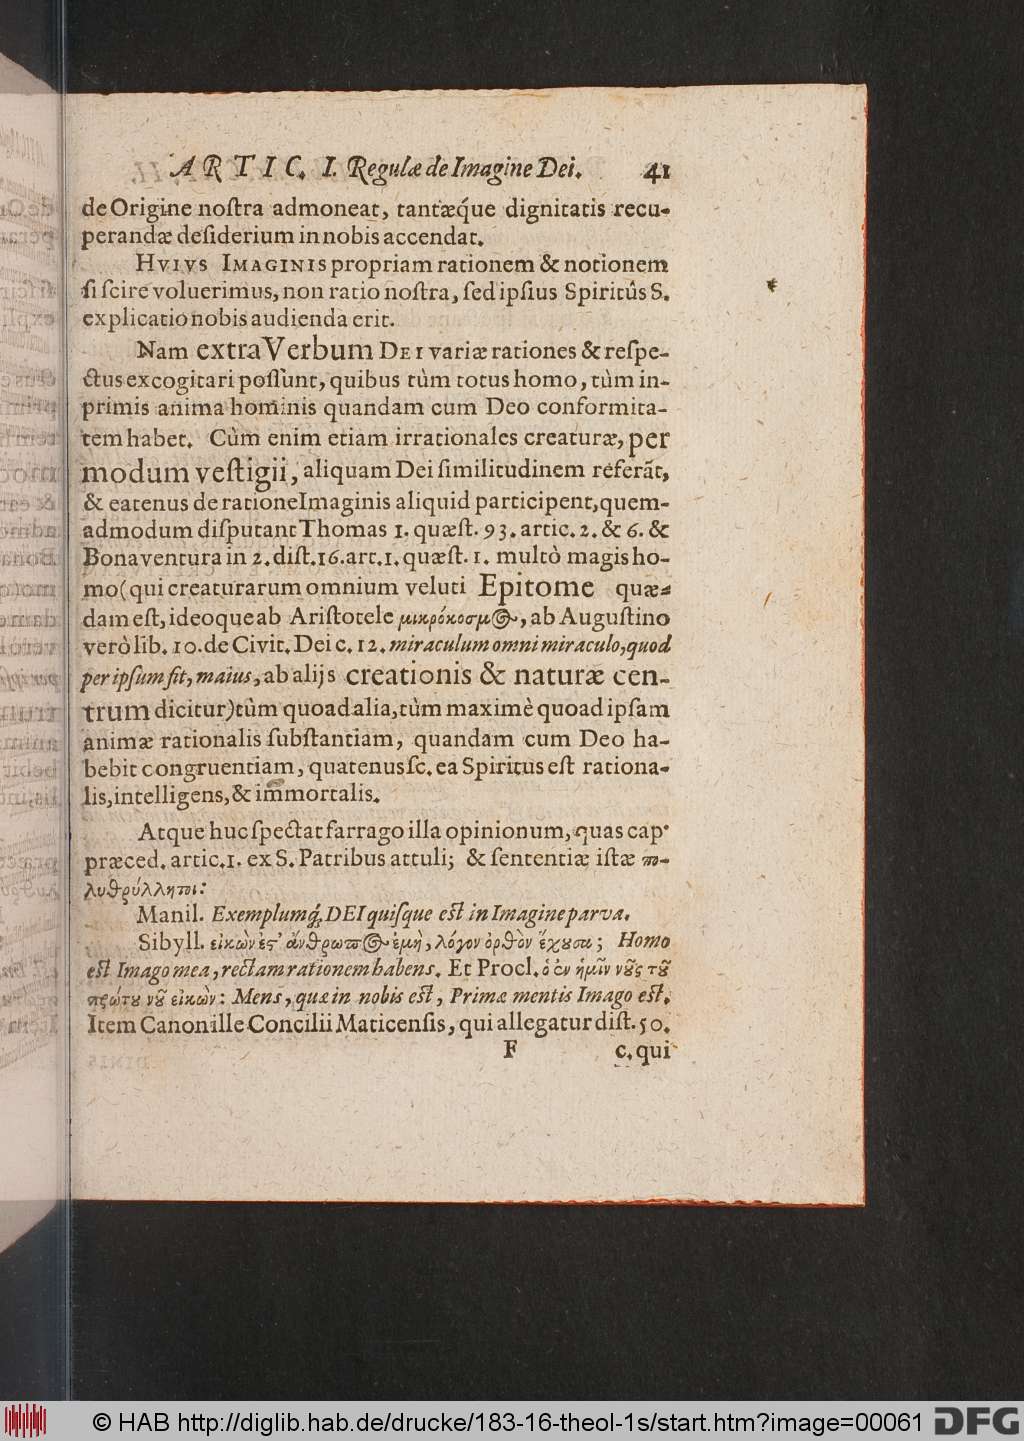 ARTIC. I. Regulæ de Imagine Dei. 41
de Origine noſtra admoneat, tantæq́ue dignitatis recu-
perandæ deſiderium in nobis accendat.
HVIVS IMAGINIS propriam rationem & notionem
ſi ſcire voluerimus, non ratio noſtra, ſed ipſius Spiritûs S.
explicatio nobis audienda erit.
Nam extra Verbum DEI variæ rationes & reſpe-
ctus excogitari poſſunt, quibus tùm totus homo, tùm in-
primis anima hominis quandam cum Deo conformita-
tem habet. Cùm enim etiam irrationales creaturæ, per
modum veſtigii, aliquam Dei ſimilitudinem referãt,
& eatenus de ratione Imaginis aliquid participent, quem-
admodum diſputant Thomas 1. quæſt. 93. artic. 2. & 6. &
Bonaventura in 2. diſt. 16. art. 1. quæſt. 1. multò magis ho-
mo (qui creaturarum omnium veluti Epitome quæ-
dam eſt, ideoque ab Ariſtotele μικρόκοσμος, ab Auguſtino
verò lib. 10. de Civit. Dei c. 12. miraculum omni miraculo, quod
per ipſum fit, maius, ab alijs creationis & naturæ cen-
trum dicitur) tùm quoad alia, tùm maximè quoad ipſam
animæ rationalis ſubſtantiam, quandam cum Deo ha-
bebit congruentiam, quatenus ſc. ea Spiritus eſt rationa-
lis, intelligens, & immortalis.
Atque huc ſpectat farrago illa opinionum, quas cap.
præced. artic. 1. ex S. Patribus attuli; & ſententiæ iſtæ πο-
λυθρύλλητοι:
Manil. Exemplumq́; DEI quiſque eſt in Imagine parva.
Sibyll. εἰκὼν ἐς' ἄνθρωπος ἐμὴ, λόγον ὀρθὸν ἔχουσα; Homo
eſt Imago mea, rectam rationem habens. Et Procl. ὁ ἐν ἡμῖν νοῦς τοῦ
πρώτου νοῦ εἰκών: Mens, quæ in nobis eſt, Primæ mentis Imago eſt.
Item Canon ille Concilii Maticenſis, qui allegatur diſt. 50.
F c. qui
© HAB http://diglib.hab.de/drucke/183-16-theol-1s/start.htm?image=00061 DFG